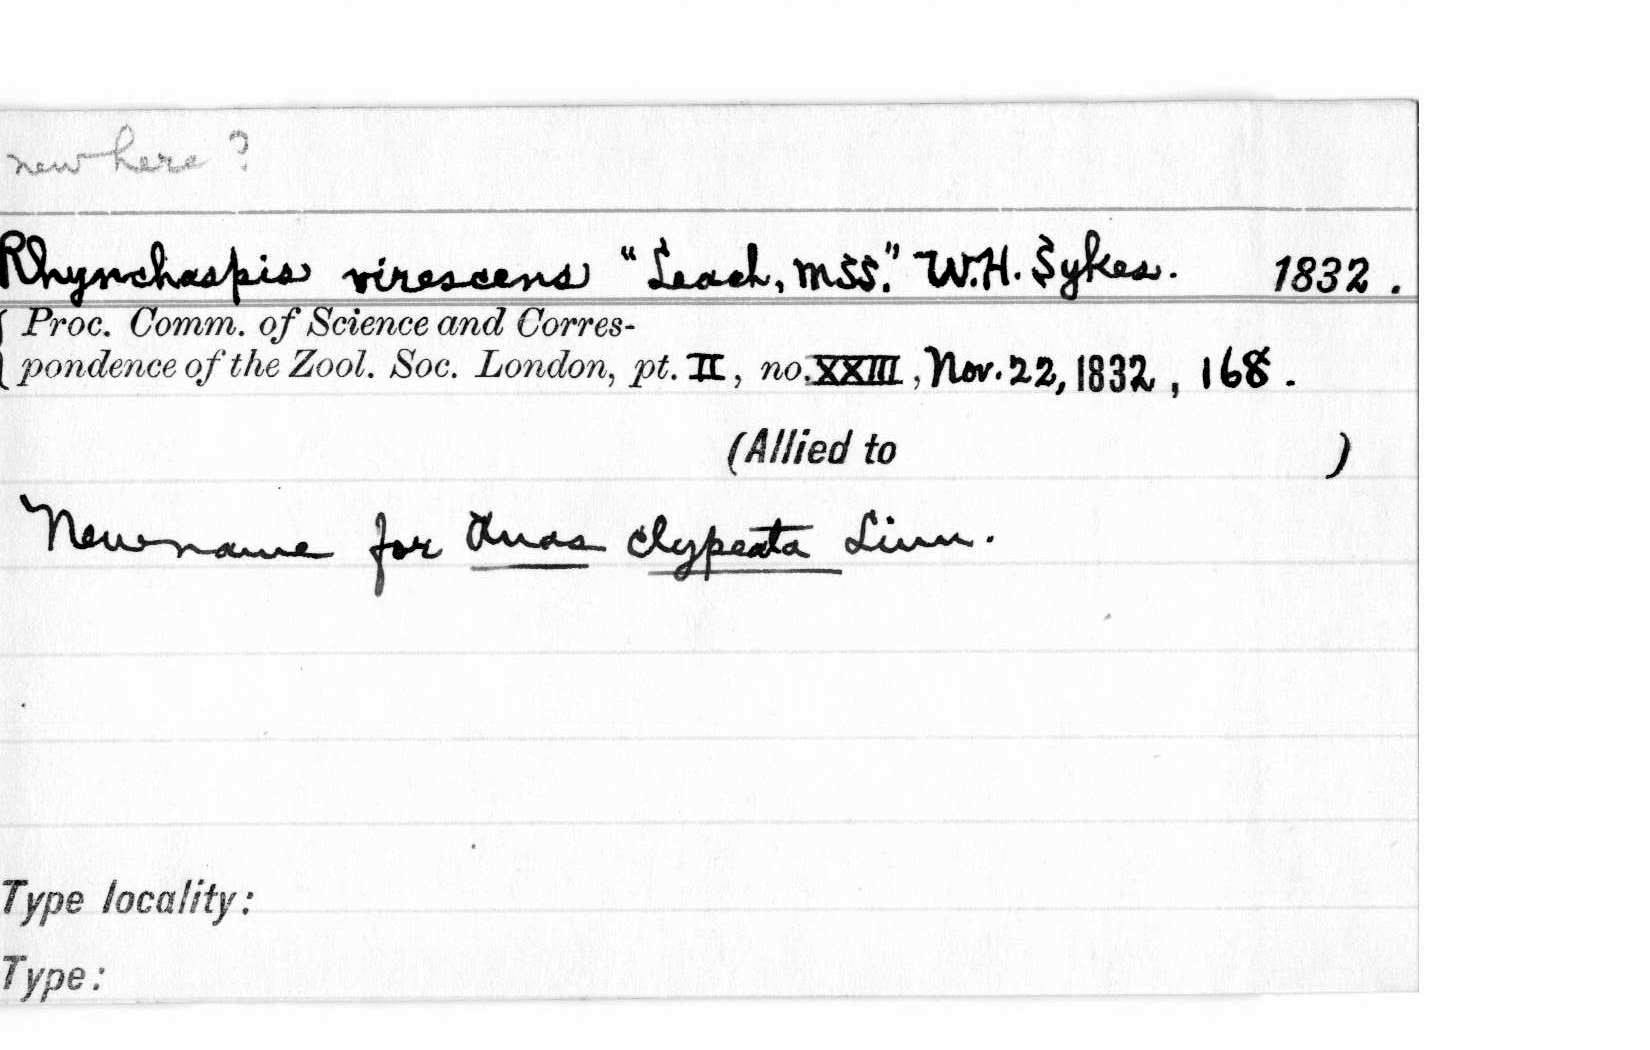 new here ?
Rhynchaspis virescens "Leach, MSS." W.H. Sykes. 1832.
Proc. Comm. of Science and Corres-
pondence of the Zool. Soc. London, pt. II, no. XXIII, Nov. 22, 1832, 168.
(Allied to )
New name for Anas clypeata Linn.
Type locality:
Type: